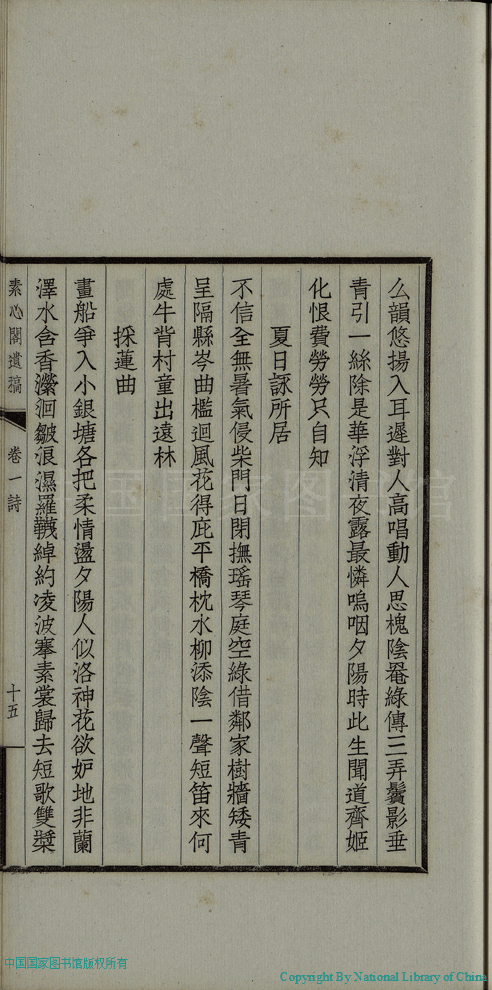 么韻悠揚入耳遲對人高唱動人思槐陰罨綠傳三弄鬢影垂
青引一絲除是華浮清夜露最憐嗚咽夕陽時此生聞道齊姬
化恨費勞勞只自知
夏日詠所居
不信全無暑氣侵柴門日閉撫瑤琴庭空綠借鄰家樹牆矮青
呈隔縣岑曲檻迴風花得庇平橋枕水柳添陰一聲短笛來何
處牛背村童出遠林
採蓮曲
畫船爭入小銀塘各把柔情盪夕陽人似洛神花欲妒地非蘭
澤水含香瀠洄皺浪濕羅韈綽約凌波搴素裳歸去短歌雙槳
素心閣遺稿
卷一詩
十五
中国国家图书馆
中国国家图书馆版权所有
Copyright By National Library of China